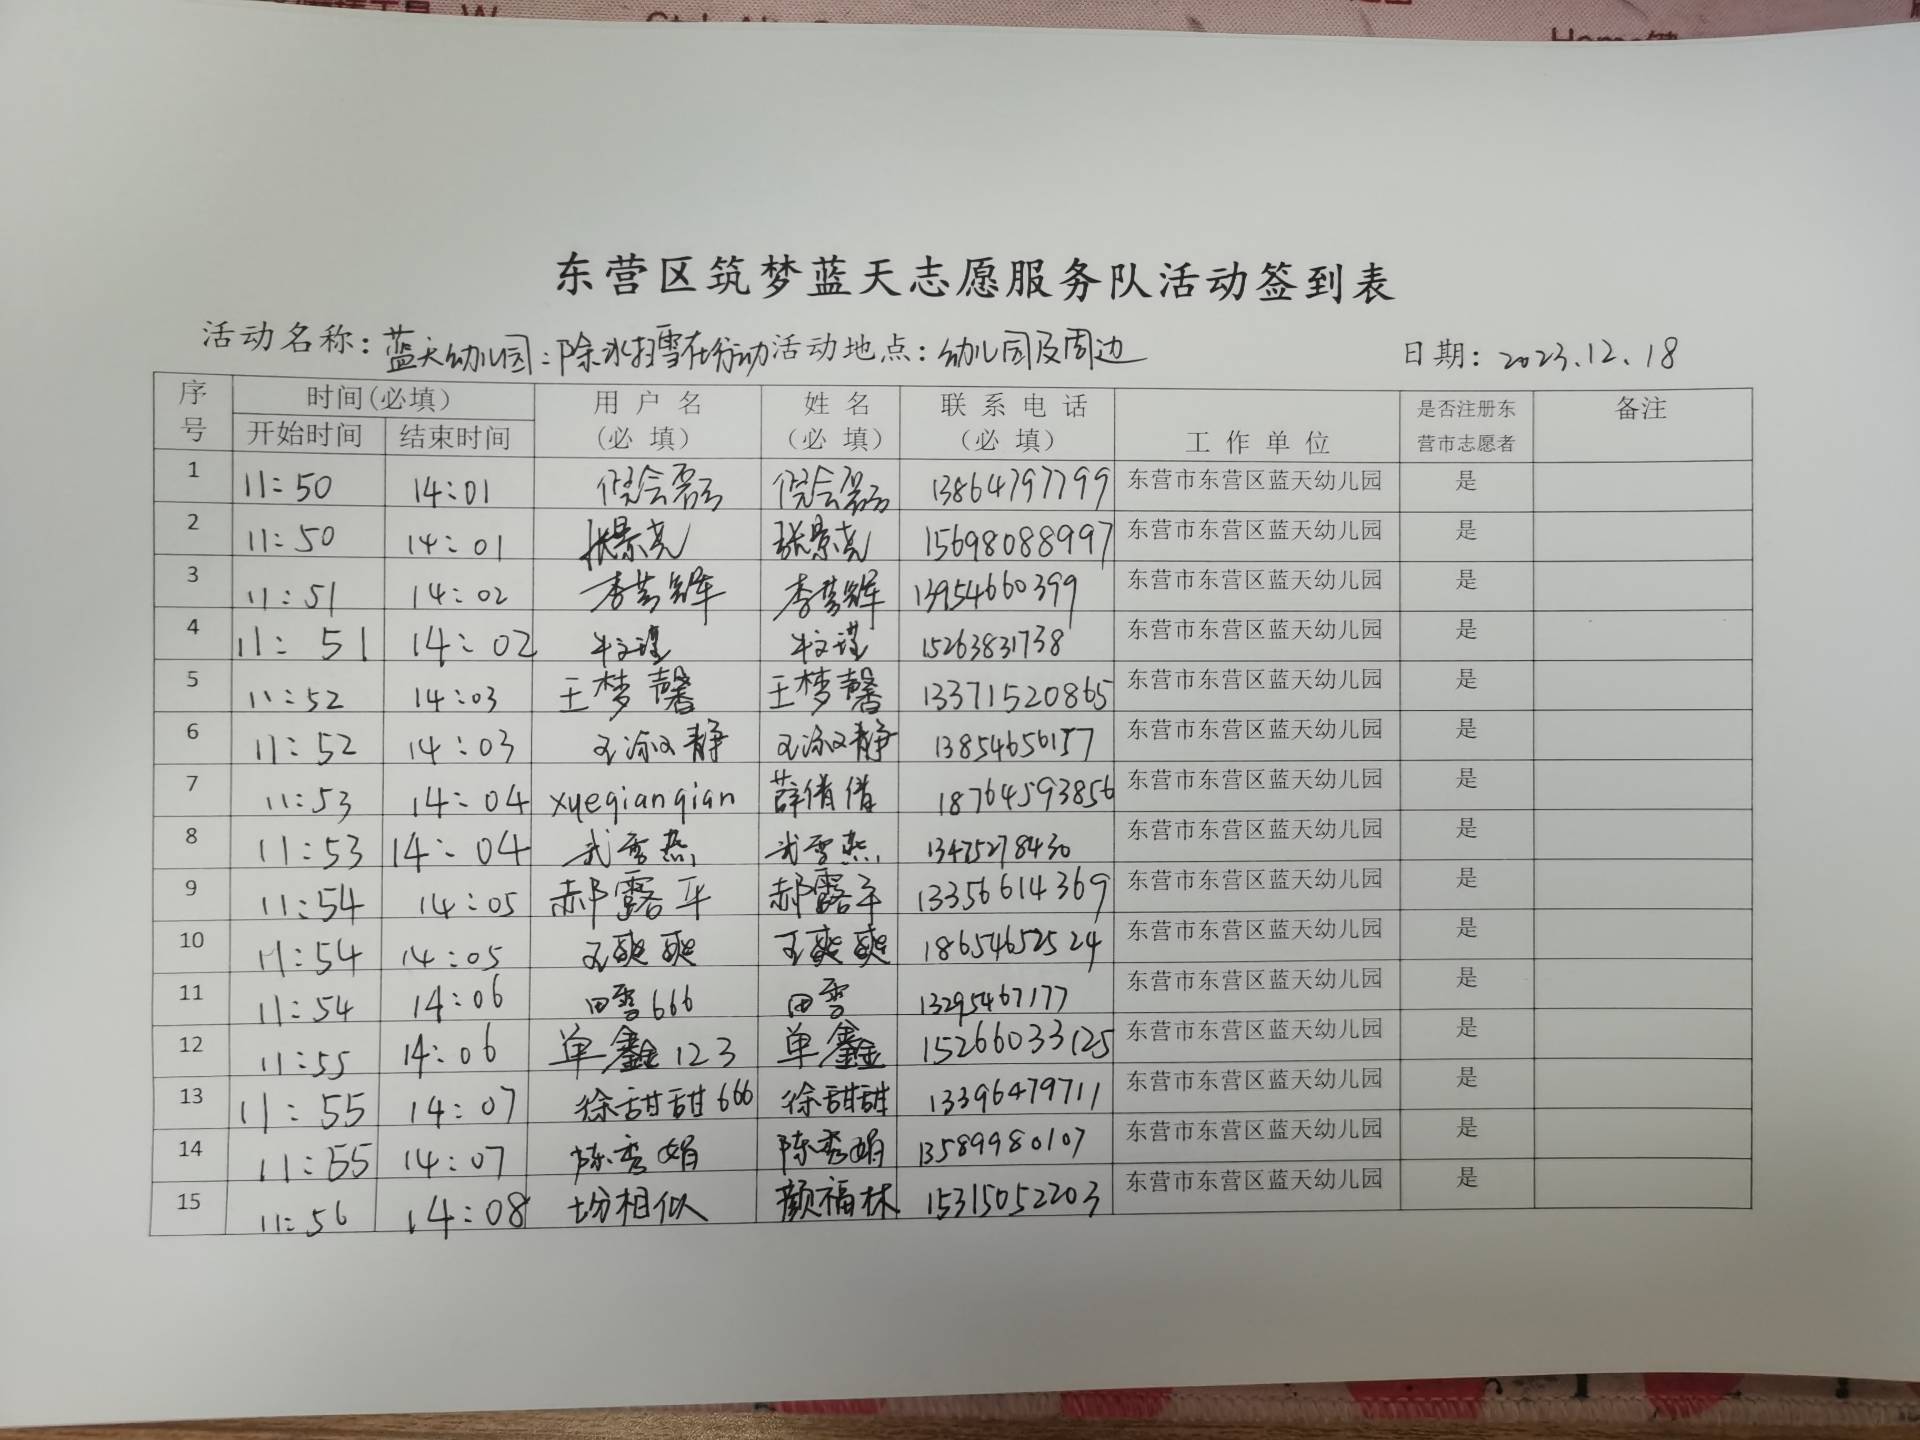 Home键
东营区筑梦蓝天志愿服务队活动签到表
活动名称：蓝天幼儿园：除冰扫雪在行动 活动地点：幼儿园及周边 日期：2023.12.18
序号 时间(必填) 用户名(必填) 姓名(必填) 联系电话(必填) 工作单位 是否注册东营市志愿者 备注
开始时间 结束时间
1 11:50 14:01 倪会 倪会 13864797799 东营市东营区蓝天幼儿园 是
2 11:50 14:01 张景尧 张景尧 15698088997 东营市东营区蓝天幼儿园 是
3 11:51 14:02 李梦辉 李梦辉 13954660399 东营市东营区蓝天幼儿园 是
4 11:51 14:02 15263831738 东营市东营区蓝天幼儿园 是
5 11:52 14:03 王梦馨 王梦馨 13371520865 东营市东营区蓝天幼儿园 是
6 11:52 14:03 王淑静 王淑静 13854656157 东营市东营区蓝天幼儿园 是
7 11:53 14:04 xueqianqian 薛倩倩 18764593856 东营市东营区蓝天幼儿园 是
8 11:53 14:04 武雪燕 武雪燕 13475278430 东营市东营区蓝天幼儿园 是
9 11:54 14:05 郝露平 郝露平 13356614369 东营市东营区蓝天幼儿园 是
10 11:54 14:05 王爽爽 王爽爽 18654652524 东营市东营区蓝天幼儿园 是
11 11:54 14:06 田雪666 田雪 13295467177 东营市东营区蓝天幼儿园 是
12 11:55 14:06 单鑫123 单鑫 15266033125 东营市东营区蓝天幼儿园 是
13 11:55 14:07 徐甜甜666 徐甜甜 13396479711 东营市东营区蓝天幼儿园 是
14 11:55 14:07 陈秀娟 陈秀娟 13589980107 东营市东营区蓝天幼儿园 是
15 11:56 14:08 相似 颜福林 15315052203 东营市东营区蓝天幼儿园 是